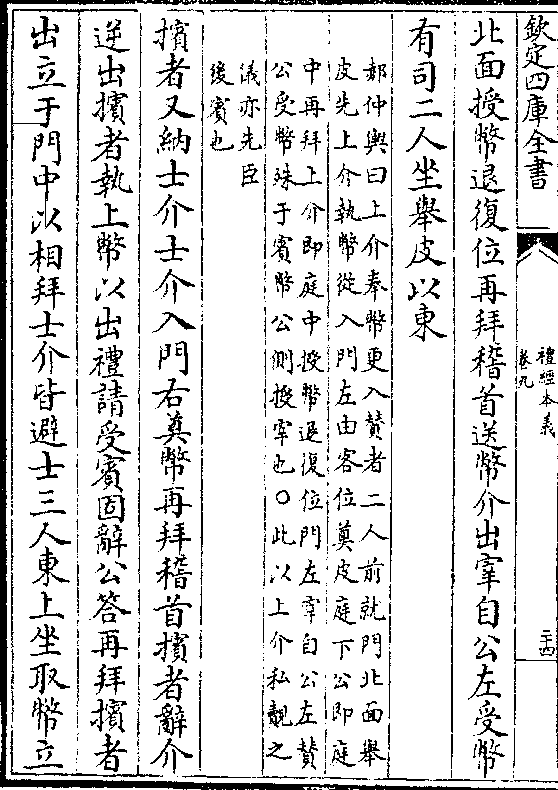 欽定四庫全書
禮經本義
卷九
二十四
北面授幣退復位再拜稽首送幣介出宰自公左受幣
有司二人坐舉皮以東
郝仲輿曰上介奉幣更入贊者二人前就門北面舉
皮先上介執幣從入門左由客位奠皮庭下公即庭
中再拜上介即庭中授幣退復位門左宰自公左贊
公受幣殊于賓幣公側授宰也○此以上介私覿之
儀亦先臣
後賓也
擯者又納士介士介入門右奠幣再拜稽首擯者辭介
逆出擯者執上幣以出禮請受賓固辭公答再拜擯者
出立于門中以相拜士介皆避士三人東上坐取幣立